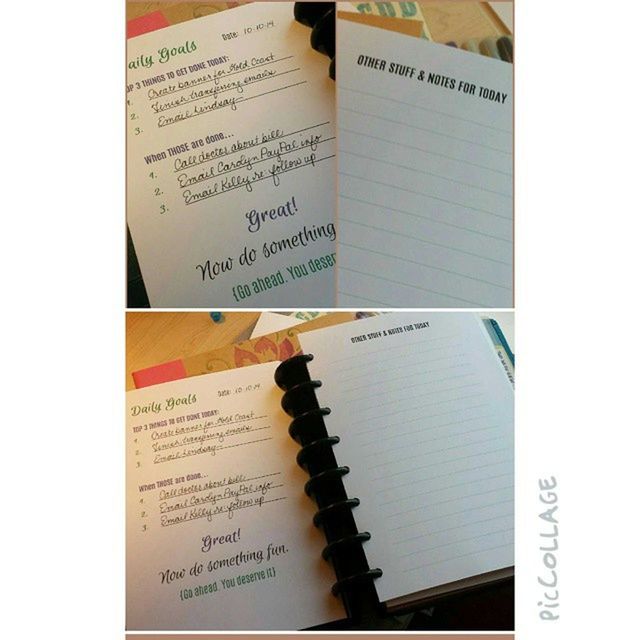 aily Goals
Date: 10.10.14
OP 3 THINGS TO GET DONE TODAY:
1. Create banner for Gold Coast
2. transferring emails
3. Email Lindsay
When THOSE are done...
1. Call doctor about bill
2. Email Carolyn PayPal info
3. Email Kelly re: follow up
Great!
Now do something
{Go ahead. You deser
OTHER STUFF & NOTES FOR TODAY
Daily Goals
Date: 10.10.14
TOP 3 THINGS TO GET DONE TODAY:
1. Create banner for Gold Coast
2. transferring emails
3. Email Lindsay
When THOSE are done...
1. Call doctor about bill
2. Email Carolyn PayPal info
3. Email Kelly re: follow up
Great!
Now do something fun.
{Go ahead. You deserve it}
OTHER STUFF & NOTES FOR TODAY
PicCollage